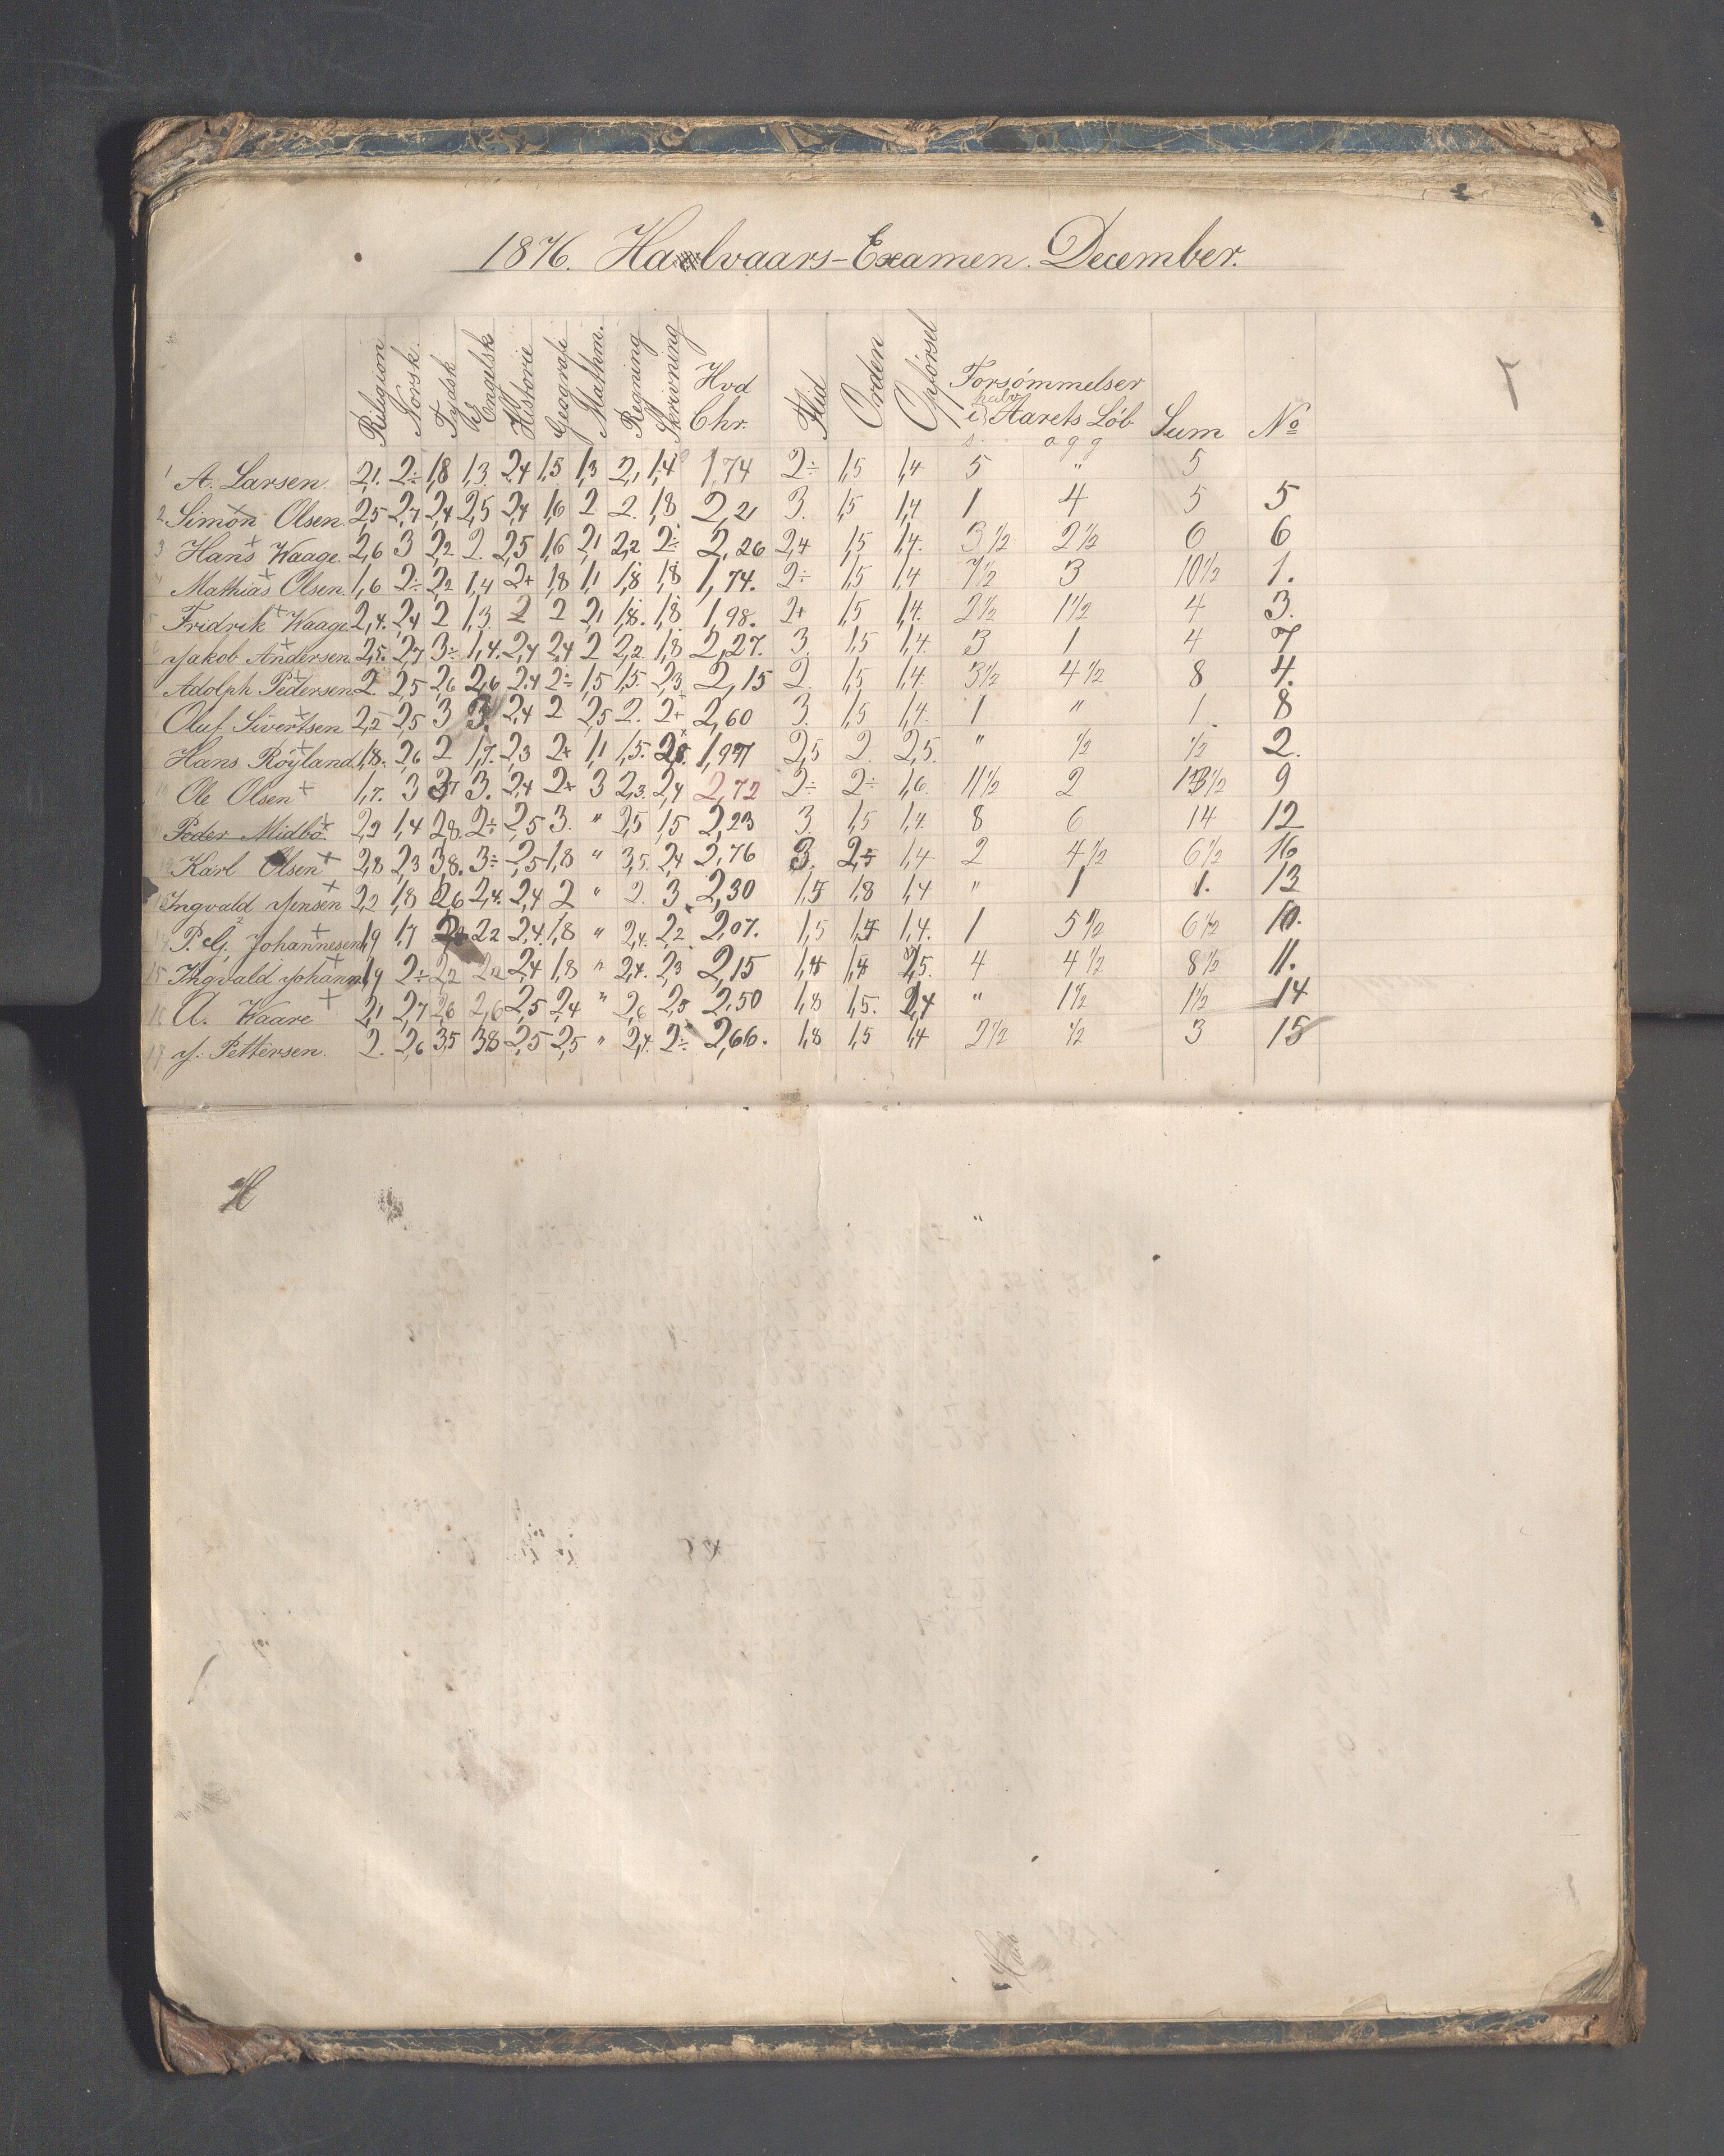 1876. Halvaars-Examen. December.
Religion Norsk. Tydsk Engelsk Historie Geografi Mathm. Regning Skrivning Hvd Chr. Flid Orden Opførsel Forsømmelser i halv Aarets Løb Sum No
s. a g g
1 A. Larsen. 2,1. 2÷ 1,8 1,3. 2,4 1,5 1,3 2,1 1,4 1,74 2÷ 1,5 1,4 5 " 5
2 Simon Olsen. 2,5 2,7 2,4 2,5 2,4 1,6 2 2. 1,8 2,21 3. 1,5 1,4 1 4 5 5
3 Hans Waage. 2,6 3 2,2 2. 2,5 1,6 2,1 2,2 2÷ 2,26 2,4 1,5 1,4. 3 1/2 2 1/2 6 6
4 Mathias Olsen. 1,6 2÷ 2,2 1,4 2+ 1,8 1,1 1,8 1,8 1,74. 2÷ 1,5 1,4 7 1/2 3 10 1/2 1.
5 Fridrik Waage. 2,4. 2,4 2 1,3. 2 2 2,1 1,8. 1,8 1,98. 2+ 1,5 1,4. 2 1/2 1 1/2 4 3.
6 Jakob Andersen. 2,5. 2,7 3÷ 1,4. 2,4 2,4 2 2,2. 1,8 2,27. 3. 1,5 1,4. 3 1 4 7
Adolph Pedersen 2. 2,5 2,6 2,6 2,4 2÷ 1,5 1,5. 2,3 2,15 2. 1,5 1,4. 3 1/2 4 1/2 8 4.
Oluf Sivertsen 2,2 2,5 3 3. 2,4 2 2,5 2. 2+ 2,60 3. 1,5 1,4. 1 " 1. 8
Hans Röyland. 1,8. 2,6 2 1,7. 2,3 2+ 1,1 1,5. 1,97 2,5 2. 2,5. " 1/2 1/2 2.
10 Ole Olsen 1,7. 3 3. 2,4 2+ 3 2,3. 2,4 2,72 2÷ 2÷ 1,6. 11 1/2 2 13 1/2 9
Peder Midbö. 2,2 1,4 2,8. 2÷ 2,5 3. " 2,5 1,5 2,23 3. 1,5 1,4. 8 6 14 12
12 Karl Olsen 2,8 2,3 3,8. 3÷ 2,5 1,8 " 3,5. 2,4 2,76 3. 1,4 2 4 1/2 6 1/2 16
Ingvald Jensen 2,2 1,8 2,6 2,4. 2,4 2 " 2. 3 2,30 1,5 1,8 1,4 " 1 1. 13
14 P. G. Johannesen 1,9 1,7 2,2 2,4. 1,8 " 2,4. 2,2 2,07. 1,5 1,4. 1 5 1/2 6 1/2 10.
15 Ingvald Johann. 1,9 2÷ 2,2 2,2 2,4 1,8 " 2,4. 2,3 2,15 1,4 1,4 4 4 1/2 8 1/2 11.
16 A. Waare 2,1 2,7 2,6 2,6 2,5 2,4 " 2,6 2,5 2,50 1,8 1,5. " 1 1/2 1 1/2 14
17 J. Pettersen. 2. 2,6 3,5 3,8 2,5 2,5 " 2,4. 2÷ 2,66. 1,8 1,5 1,4 2 1/2 1/2 3 15
H